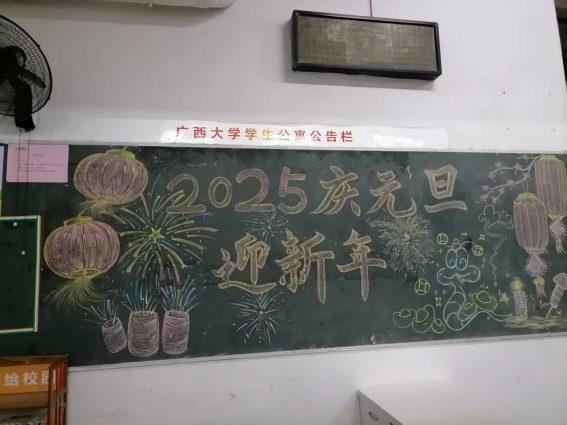 广西大学学生公寓公告栏
2025庆元旦
迎新年
给校园